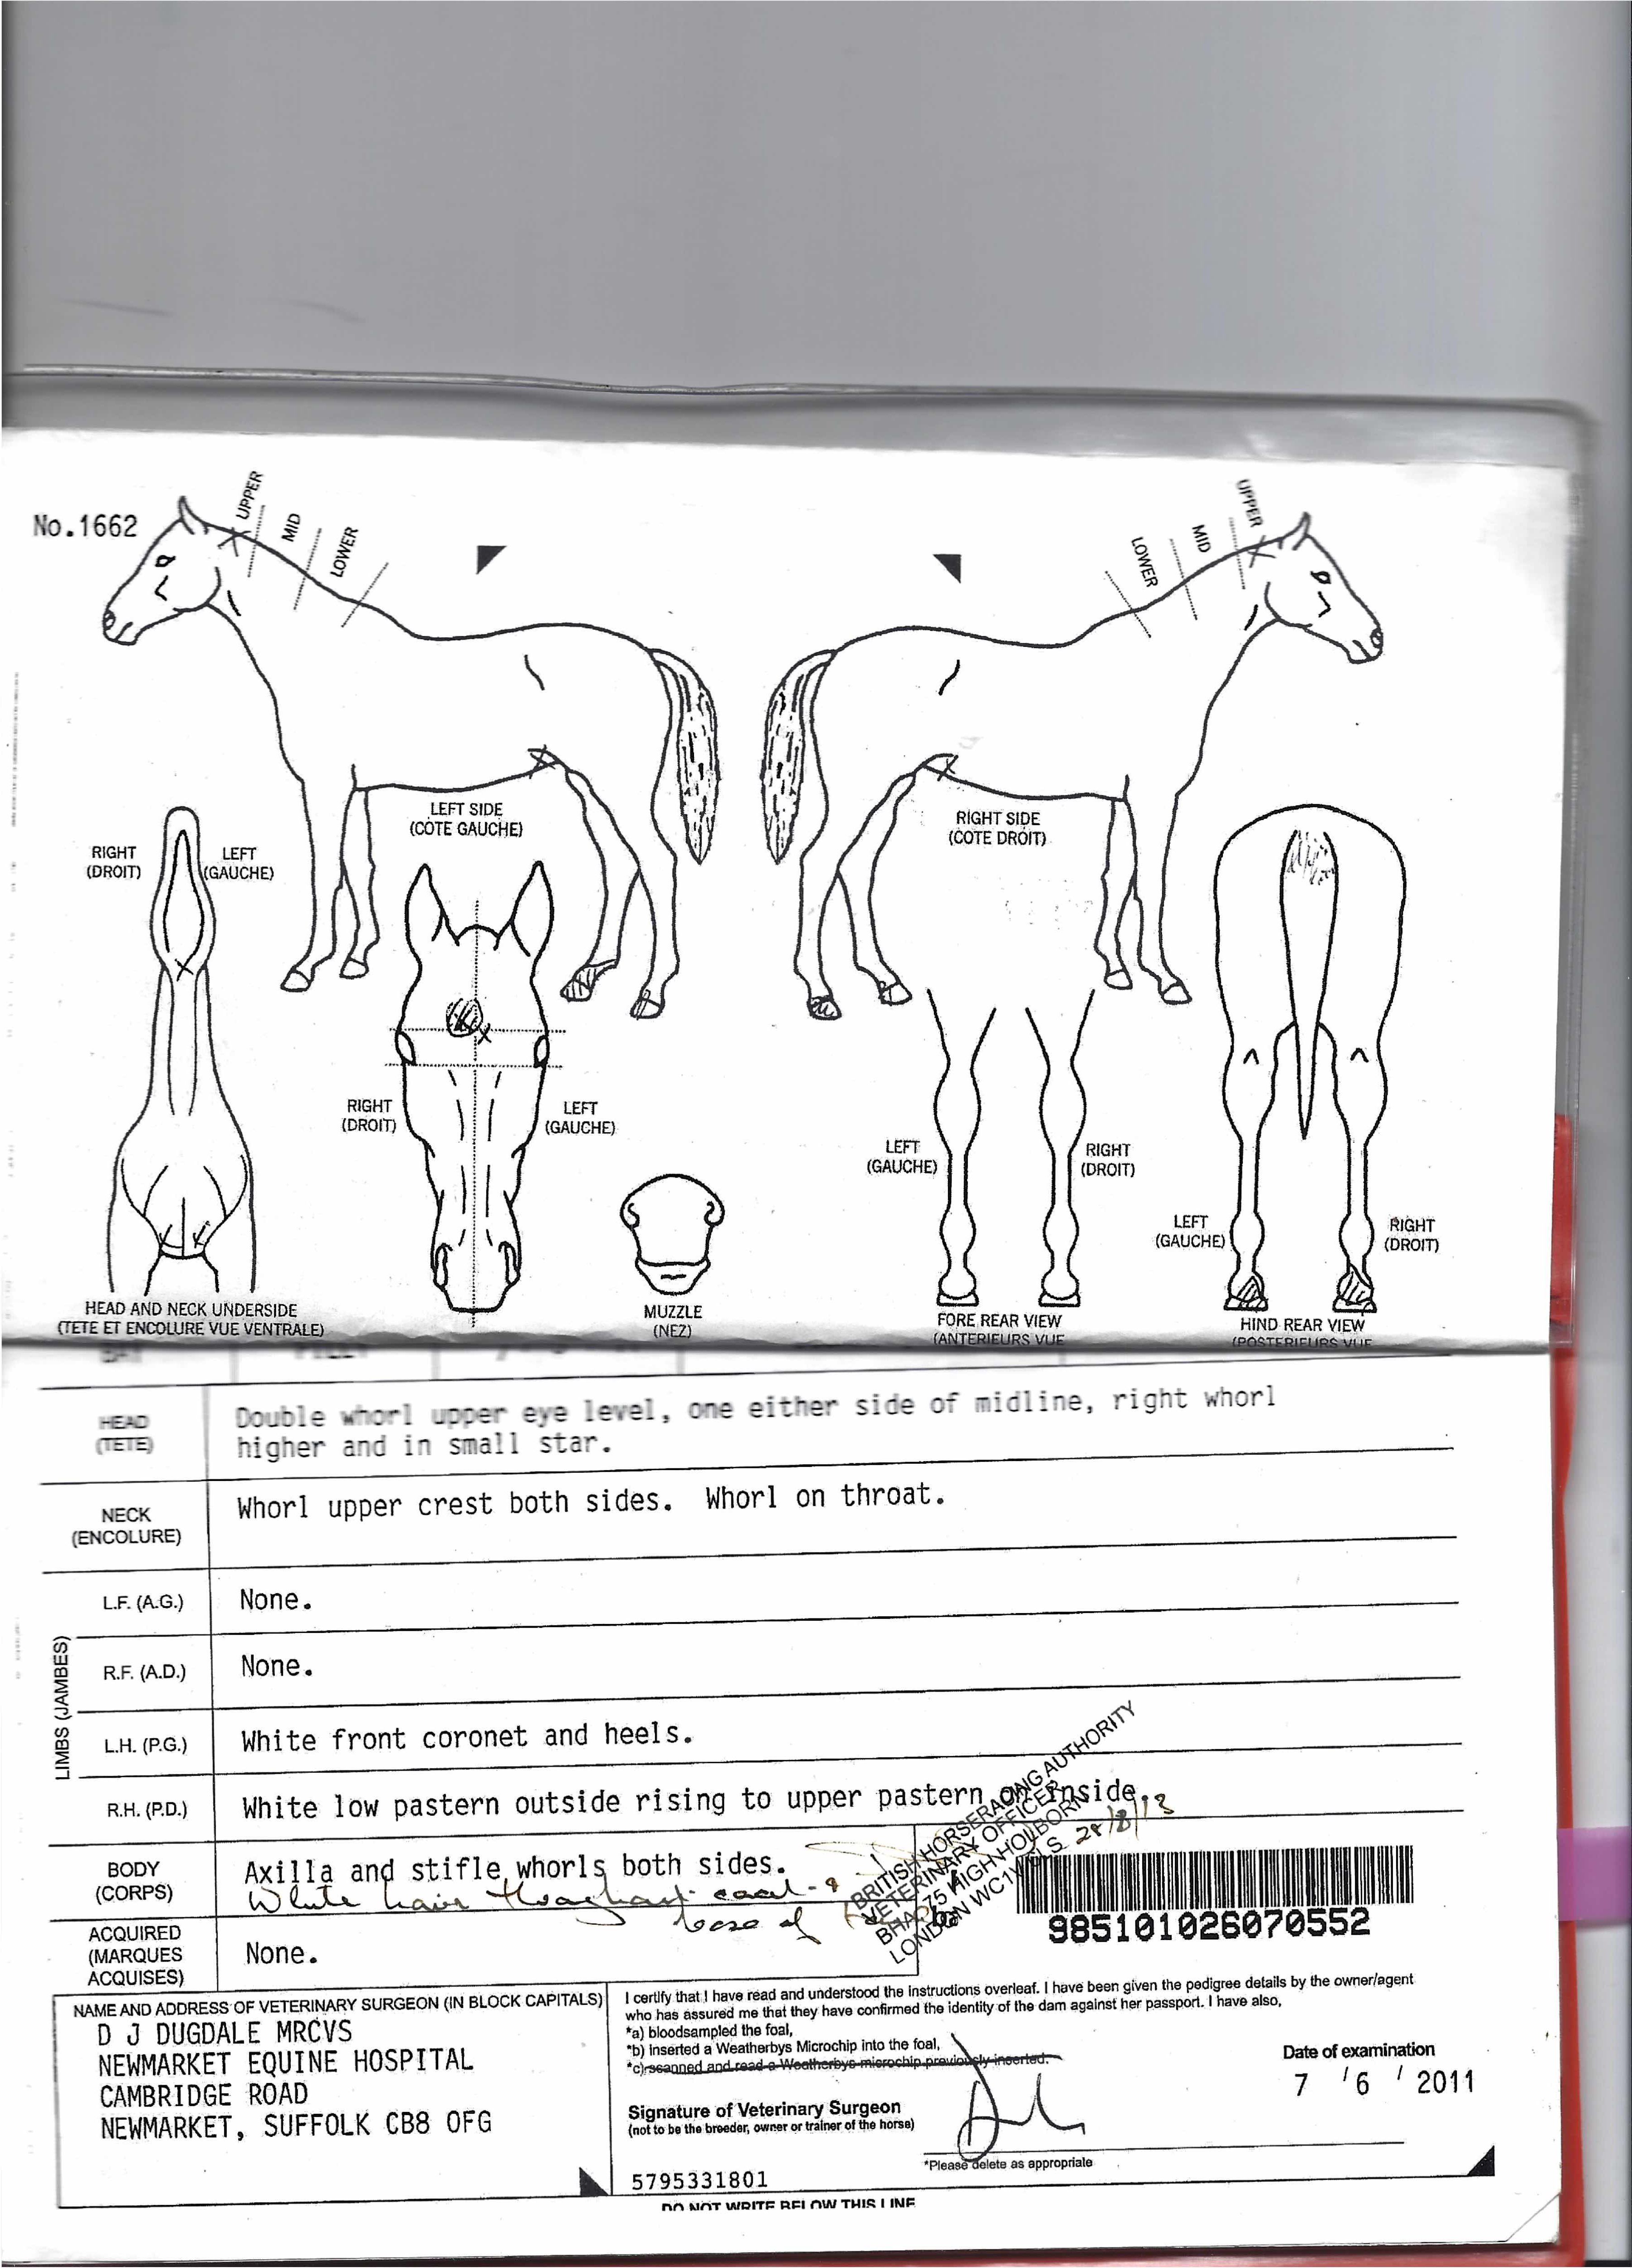 No.1662
UPPER
MID
LOWER
UPPER
MID
LOWER
LEFT SIDE
(COTE GAUCHE)
RIGHT SIDE
(COTE DROIT)
RIGHT
(DROIT)
LEFT
(GAUCHE)
RIGHT
(DROIT)
LEFT
(GAUCHE)
LEFT
(GAUCHE)
RIGHT
(DROIT)
LEFT
(GAUCHE)
RIGHT
(DROIT)
HEAD AND NECK UNDERSIDE
(TETE ET ENCOLURE VUE VENTRALE)
MUZZLE
(NEZ)
FORE REAR VIEW
(ANTERIEURS VUE
HIND REAR VIEW
(POSTERIEURS VUE
HEAD
(TETE)
Double whorl upper eye level, one either side of midline, right whorl
higher and in small star.
NECK
(ENCOLURE)
Whorl upper crest both sides. Whorl on throat.
LIMBS (JAMBES)
L.F. (A.G.)
None.
R.F. (A.D.)
None.
L.H. (P.G.)
White front coronet and heels.
R.H. (P.D.)
White low pastern outside rising to upper pastern on inside.
BODY
(CORPS)
Axilla and stifle whorls both sides.
White hair throughout coat &
base of
BRITISH HORSERACING AUTHORITY
VETERINARY OFFICER
BHA 75 HIGH HOLBORN
LONDON WC1V 6LS
985101026070552
ACQUIRED
(MARQUES
ACQUISES)
None.
NAME AND ADDRESS OF VETERINARY SURGEON (IN BLOCK CAPITALS)
D J DUGDALE MRCVS
NEWMARKET EQUINE HOSPITAL
CAMBRIDGE ROAD
NEWMARKET, SUFFOLK CB8 0FG
I certify that I have read and understood the instructions overleaf. I have been given the pedigree details by the owner/agent
who has assured me that they have confirmed the identity of the dam against her passport. I have also,
*a) bloodsampled the foal,
*b) inserted a Weatherbys Microchip into the foal,
*c) scanned and read a Weatherbys microchip previously inserted.
Date of examination
7 / 6 / 2011
Signature of Veterinary Surgeon
(not to be the breeder, owner or trainer of the horse)
*Please delete as appropriate
5795331801
DO NOT WRITE BELOW THIS LINE